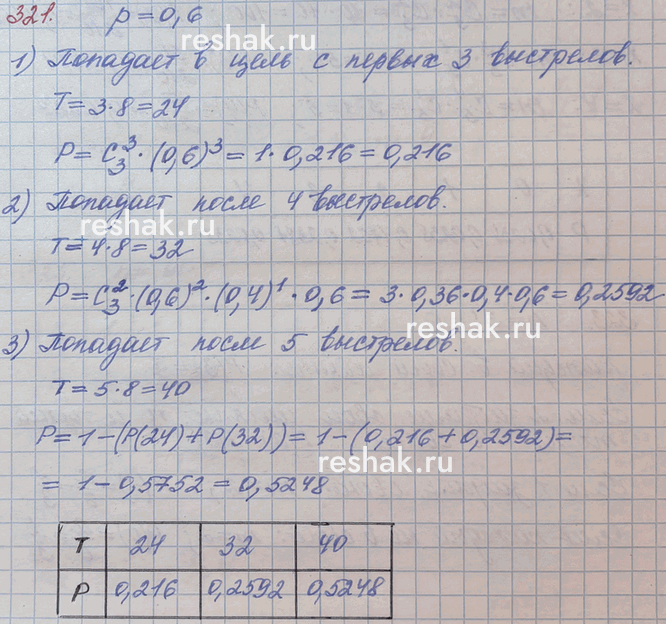 321. p = 0,6
reshak.ru
1) Попадает в цель с первых 3 выстрелов.
T = 3·8 = 24
P = C₃³·(0,6)³ = 1·0,216 = 0,216
2) Попадает после 4 выстрелов.
reshak.ru
T = 4·8 = 32
P = C₃²·(0,6)²·(0,4)¹·0,6 = 3·0,36·0,4·0,6 = 0,2592
reshak.ru
3) Попадает после 5 выстрелов.
T = 5·8 = 40
P = 1-(P(24)+P(32)) = 1-(0,216+0,2592) =
reshak.ru
= 1-0,5752 = 0,5248
T 24 32 40
P 0,216 0,2592 0,5248